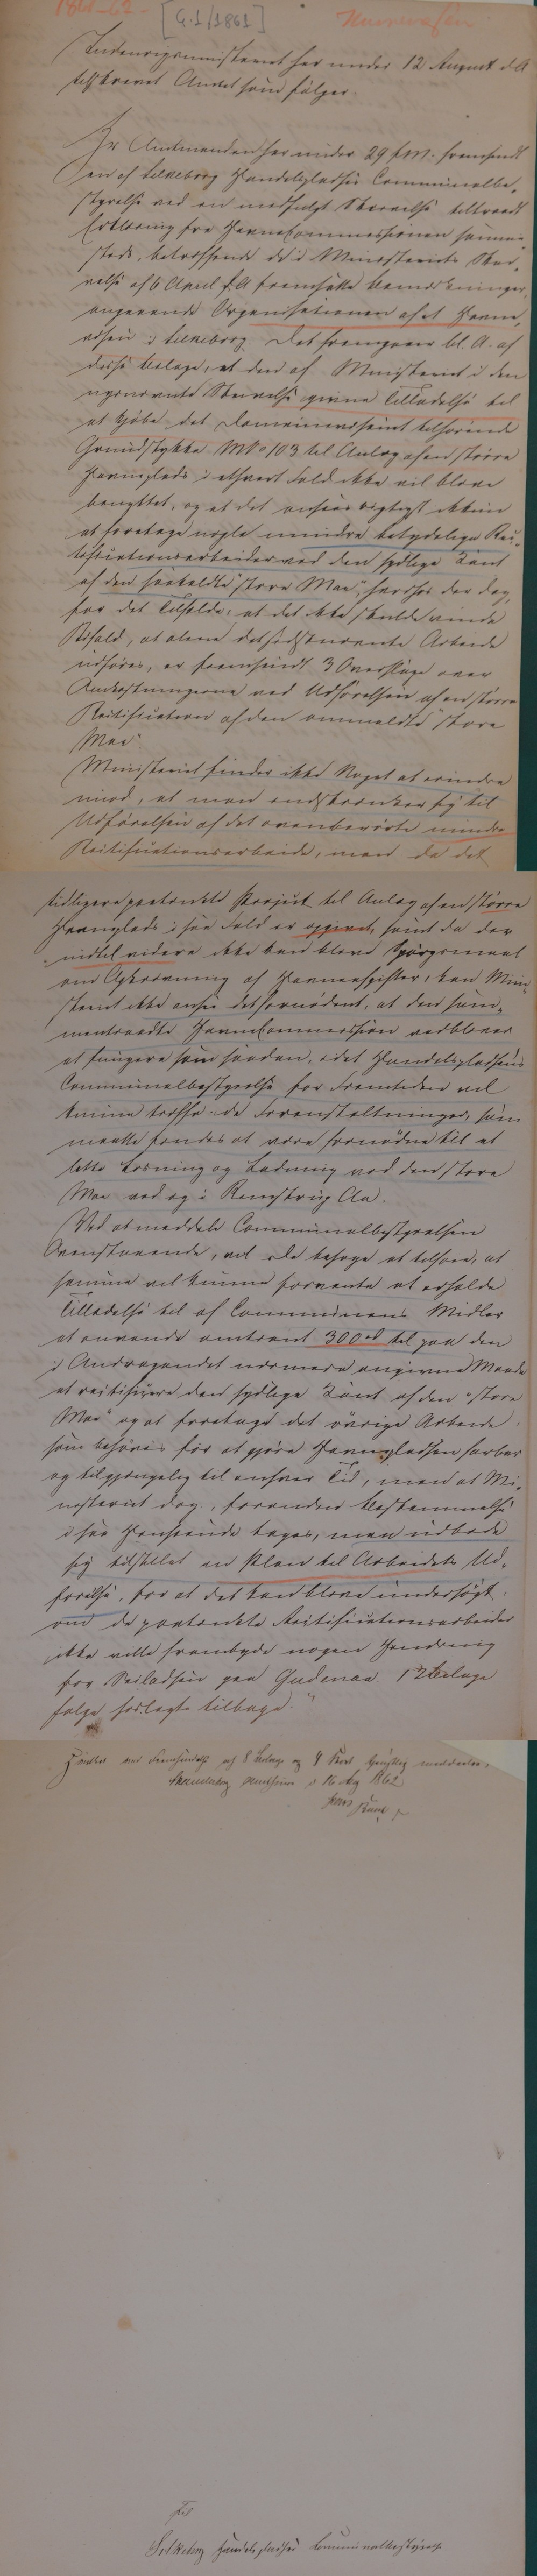 1861-62-
[G.1/1861]
Havnevæsen
Indenrigsministeriet har under 12 August d.A.
tilskrevet Amtet som følger.
Hr Amtmanden har under 29 f.M. fremsendt
en af Silkeborg Handelsplads's Communalbe-
styrelse ved en medfulgt Skrivelse tiltraadt
Erklæring fra HavneCommissionen samme-
steds, betræffende de i Ministeriets Skri-
velse af 6 April d.A. fremsatte Bemærkninger
angaaende Organisationen af et Havne-
væsen i Silkeborg. Det fremgaaer bl.A. af
disse Bilage, at den af Ministeriet i den
ngnævnte Skrivelse givne Tilladelse til
at kjøbe det Domainevæsenet tilhørende
Grundstykke Mtr No 103 til Anlæg af en større
Havneplads i ethvert Fald ikke vil blive
benyttet, og at det ansees rigtigst ikkun
at foretage nogle mindre betydelige Rec-
tificationsarbeider ved den sydlige Kant
af den saakaldte "store Mae", hvorhos der dog,
for det Tilfælde, at det ikke skulde vinde
Bifald, at alene det sidstnævnte Arbeide
udføres, er fremsendt 3 Overslage over
Omkostningerne ved Udførelsen af en større
Rectification af den ommeldte "store
Mae".
Ministeriet finder ikke Noget at erindre
imod, at man indskrænker sig til
Udførelsen af det ovenberørte mindre
Rectificationsarbeide, men da det
tidligere paatænkte Project til Anlæg af en større
Havneplads i saa Fald er opgivet, samt da der
indtil videre ikke kan blive Spørgsmaal
om Opkrævning af Havneafgifter, kan Mini-
steriet ikke ansee det fornødent, at den sam-
mentraadte HavneCommission vedbliver
at fungere som saadan, idet Handelspladsens
Communalbestyrelse for Fremtiden vil
kunne træffe de Foranstaltninger, som
maatte findes at være fornødne til at
lette Losning og Ladning ved den store
Mae ved og i Remstrup Aa.
Ved at meddele Communalbestyrelsen
Ovenstaaende, vil De behage at tilføie, at
samme vil kunne forvente at erholde
Tilladelse til af Communens Midler
at anvende omtrent 300 rd til paa den
i Andragendet nærmere angivne Maade
at rectificere den sydlige Kant af den "store
Mae" og at foretage det øvrige Arbeide,
som behøves for at gjøre Havnepladsen farbar
og tilgjængelig til enhver Tid, men at Mi-
nisteriet dog, forinden Bestemmelse
i saa Henseende tages, maa udbede
sig tilstillet en Plan til Arbeidets Ud-
førelse, for at det kan blive undersøgt,
om de paatænkte Rectificationsarbeider
ikke ville frembyde nogen Hindring
for Seiladsen paa Gudenaa. 12 Bilage
følge hoslagt tilbage."
Hvilket ved Fremsendelse af 8 Bilage og 4 Kort tjenstlig meddeles.
Skanderborg Amthuus d 16 Aug 1862
Til
Silkeborg Handelsplads's Communalbestyrelse